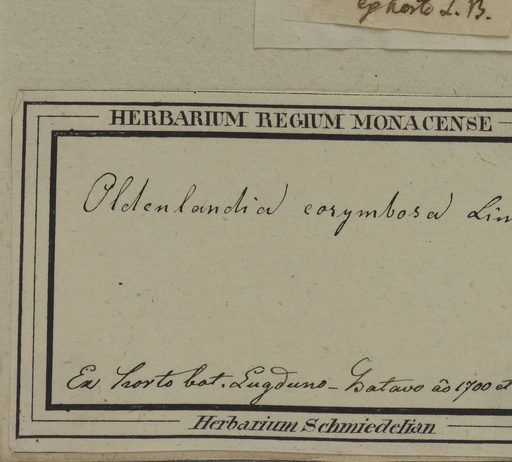 ex horto L. B.
HERBARIUM REGIUM MONACENSE
Oldenlandia corymbosa Lin
Ex horto bot. Lugduno-Batavo ão 1700 et
Herbarium Schmiedelian